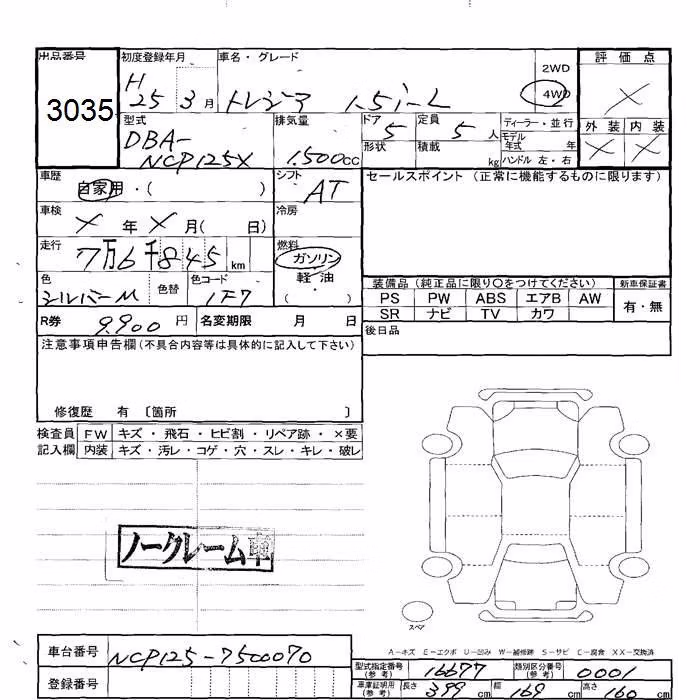 出品番号 初度登録年月 車名・グレード 2WD 評価点
3035 H 25 3月 トレジア 1.5i-L 4WD ×
型式 排気量 ドア 定員 ディーラー・並行 外装 内装
DBA- 5 5人 モデル年式 年 × ×
NCP125X 1.500cc 形状 積載 kg ハンドル 左・右
車歴 シフト セールスポイント (正常に機能するものに限ります)
自家用・( ) AT
車検 × 年 × 月( 日) 冷房
走行 燃料
7万6千845 km ガソリン
色 色替 色コード 軽・油
シルバーM 1F7 ( )
装備品 (純正品に限り○をつけてください) 新車保証書
PS PW ABS エアB AW 有・無
SR ナビ TV カワ
R券 9.900円 名変期限 月 日 後日品
注意事項申告欄(不具合内容等は具体的に記入して下さい)
修復歴 有 〔箇所 〕
検査員 FW キズ・飛石・ヒビ割・リペア跡・×要
記入欄 内装 キズ・汚レ・コゲ・穴・スレ・キレ・破レ
ノークレーム車
スペア
A-キズ E-エクボ U-凹み W-補修跡 S-サビ C-腐食 XX-交換済
車台番号 NCP125-7500070
型式指定番号(参考) 16677 類別区分番号(参考) 0001
登録番号
車庫証明用(参考) 長さ 399cm 幅 169cm 高さ 160cm